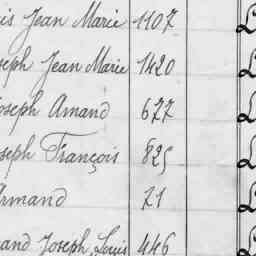 is Jean Marie 1107
seph Jean Marie 1420
oseph Amand 677
seph François 825
Armand 71
and Joseph Louis 446